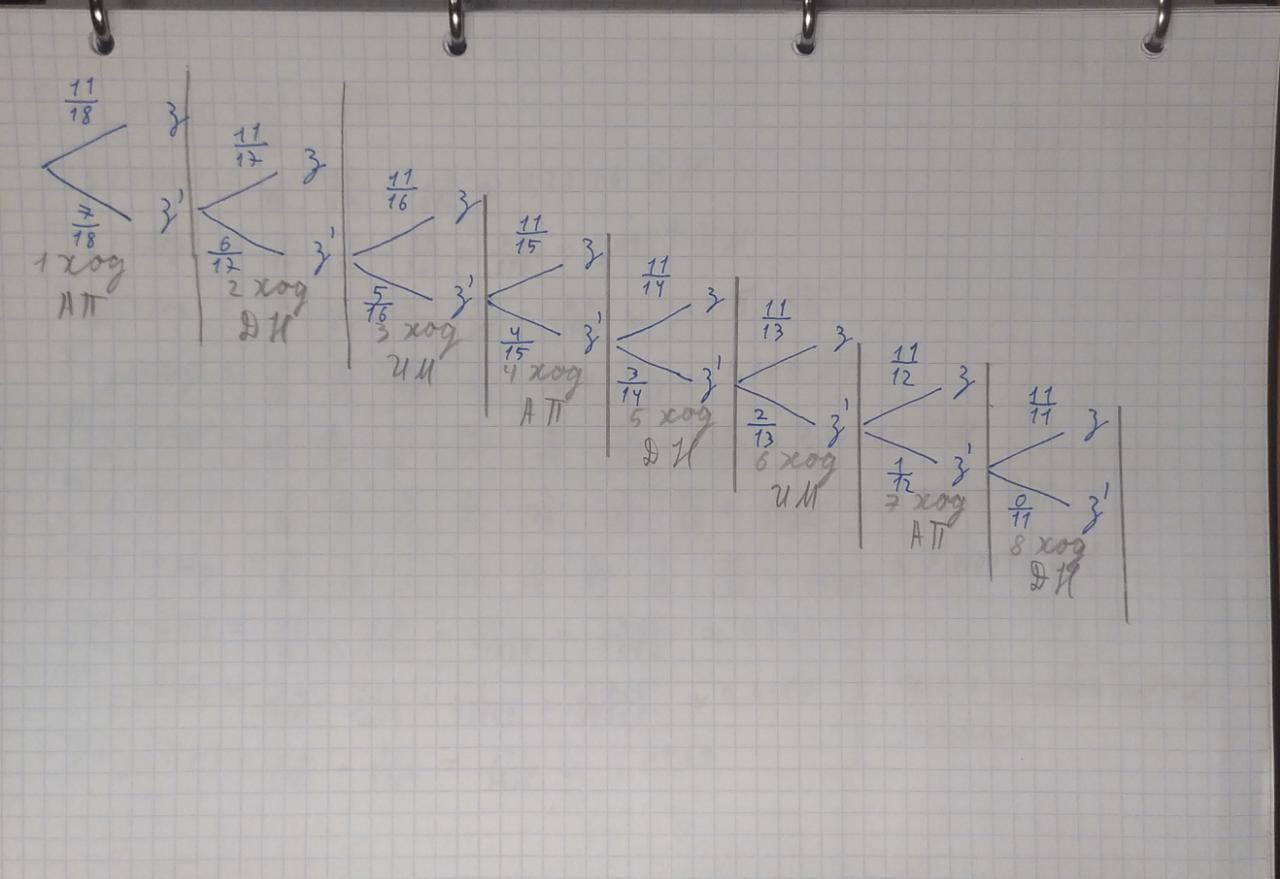 11/18 з
7/18 з'
1 ход
АП
11/17 з
6/17 з'
2 ход
ДН
11/16 з
5/16 з'
3 ход
ИМ
11/15 з
4/15 з'
4 ход
АП
11/14 з
3/14 з'
5 ход
ДН
11/13 з
2/13 з'
6 ход
ИМ
11/12 з
1/12 з'
7 ход
АП
11/11 з
0/11 з'
8 ход
ДН